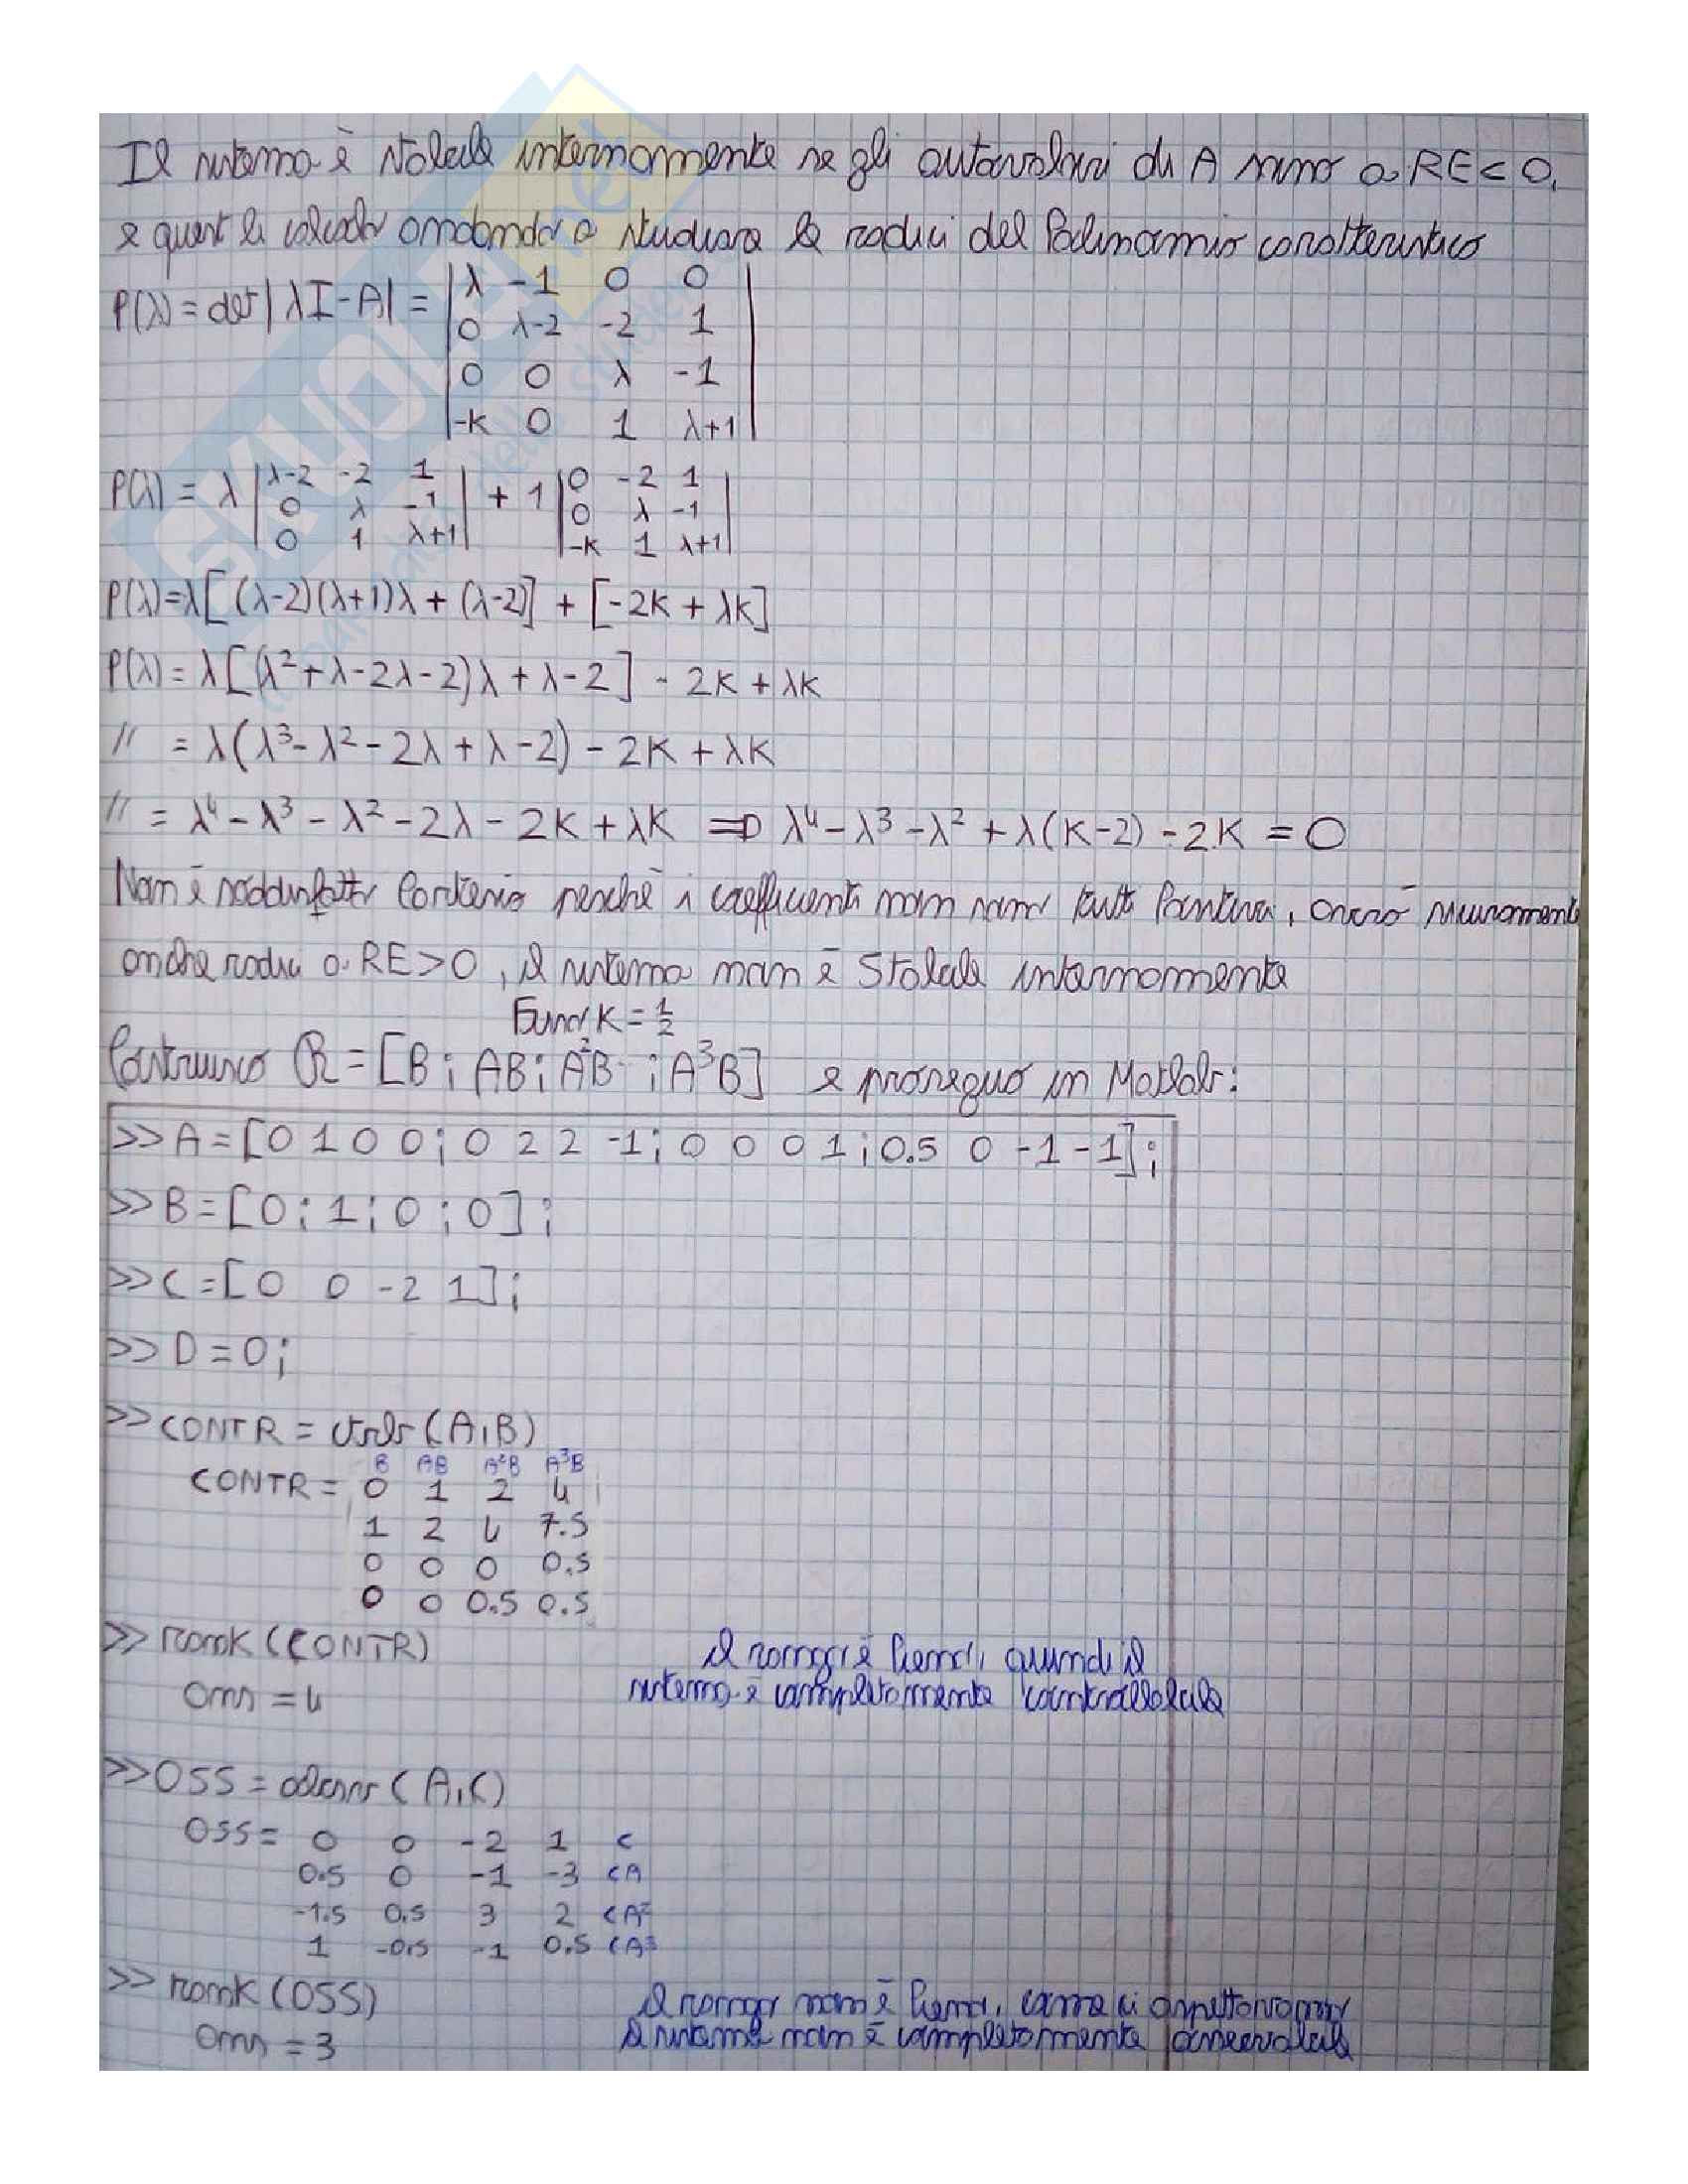 Il sistema è stabile internamente se gli autovalori di A sono a RE < 0,
e questi li calcolo andando a studiare le radici del Polinomio caratteristico
P(λ) = det |λI - A| = | λ -1 0 0 |
| 0 λ-2 -2 1 |
| 0 0 λ -1 |
| -K 0 1 λ+1 |
P(λ) = λ | λ-2 -2 1 | + 1 | 0 -2 1 |
| 0 λ -1 | | 0 λ -1 |
| 0 1 λ+1 | | -K 1 λ+1 |
P(λ) = λ[(λ-2)(λ+1)λ + (λ-2)] + [-2K + λK]
P(λ) = λ[(λ² + λ - 2λ - 2)λ + λ - 2] - 2K + λK
// = λ(λ³ - λ² - 2λ + λ - 2) - 2K + λK
// = λ⁴ - λ³ - λ² - 2λ - 2K + λK ⇒ λ⁴ - λ³ - λ² + λ(K-2) - 2K = 0
Non è soddisfatto Cartesio perché i coefficienti non sono tutti Positivi, avrò sicuramente
anche radici a RE > 0, il sistema non è Stabile internamente
K = 1/2
Costruisco R = [B ; AB ; A²B ; A³B] e proseguo in Matlab:
>> A = [0 1 0 0; 0 2 2 -1; 0 0 0 1; 0.5 0 -1 -1];
>> B = [0; 1; 0; 0];
>> C = [0 0 -2 1];
>> D = 0;
>> CONTR = ctrb(A,B)
B AB A²B A³B
CONTR = 0 1 2 4
1 2 4 7.5
0 0 0 0.5
0 0 0.5 0.5
>> rank(CONTR)
ans = 4
il rango è Pieno, quindi il
sistema è completamente controllabile
>> OSS = obsv(A,C)
OSS = 0 0 -2 1 C
0.5 0 -1 -3 CA
-1.5 0.5 3 2 CA²
1 -0.5 -1 0.5 CA³
>> rank(OSS)
ans = 3
il rango non è Pieno, come ci aspettavamo
il sistema non è completamente osservabile
SKUOLA.net